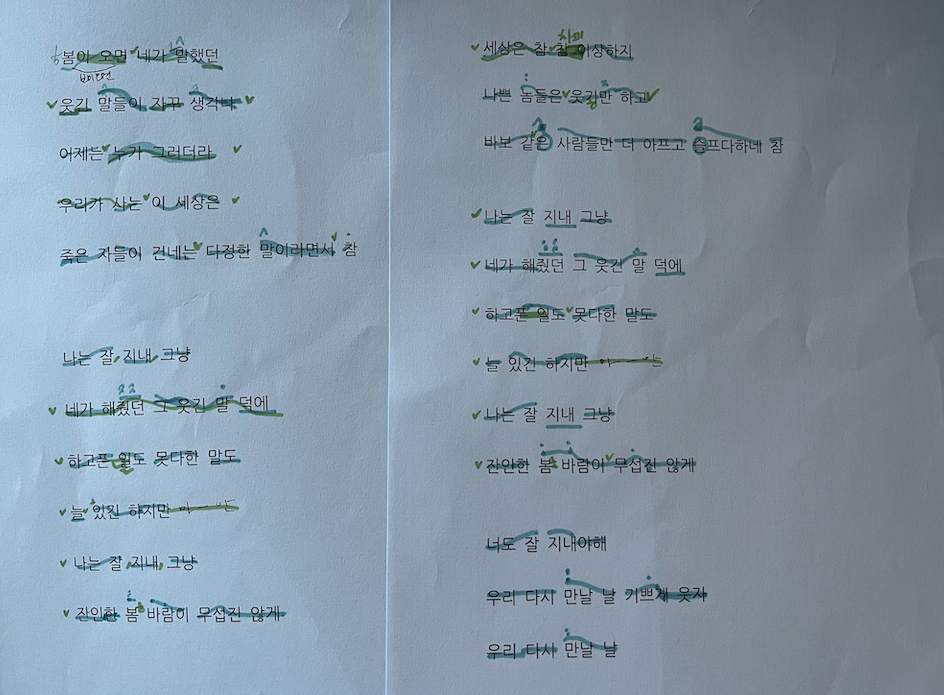 봄이 오면 네가 말했던
웃긴 말들이 자꾸 생각나
어제는 누가 그러더라
우리가 사는 이 세상은
죽은 자들이 건네는 다정한 말이라면서 참
나는 잘 지내 그냥
네가 해줬던 그 웃긴 말 덕에
하고픈 일도 못다한 말도
늘 있긴 하지만
나는 잘 지내 그냥
잔인한 봄 바람이 무섭진 않게
세상은 참 참 이상하지
나쁜 놈들은 웃기만 하고
바보 같은 사람들만 더 아프고 슬프다하네 참
나는 잘 지내 그냥
네가 해줬던 그 웃긴 말 덕에
하고픈 일도 못다한 말도
늘 있긴 하지만
나는 잘 지내 그냥
잔인한 봄 바람이 무섭진 않게
너도 잘 지내야해
우리 다시 만날 날 기쁘게 웃자
우리 다시 만날 날